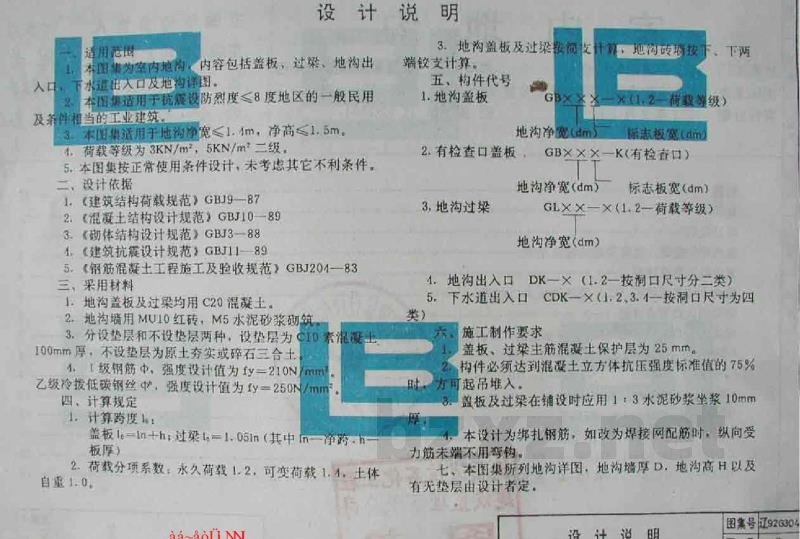 设计说明
一、适用范围
1. 本图集为室内地沟，内容包括盖板、过梁、地沟出
入口，下水道出入口及地沟详图。
2. 本图集适用于抗震设防烈度≤8度地区的一般民用
及条件相当的工业建筑。
3. 本图集适用于地沟净宽≤1.4m，净高≤1.5m。
4. 荷载等级为3KN/m²，5KN/m²二级。
5. 本图集按正常使用条件设计，未考虑其它不利条件。
二、设计依据
1. 《建筑结构荷载规范》GBJ9—87
2. 《混凝土结构设计规范》GBJ10—89
3. 《砌体结构设计规范》GBJ3—88
4. 《建筑抗震设计规范》GBJ11—89
5. 《钢筋混凝土工程施工及验收规范》GBJ204—83
三、采用材料
1. 地沟盖板及过梁均用C20混凝土。
2. 地沟墙用MU10红砖，M5水泥砂浆砌筑。
3. 分设垫层和不设垫层两种，设垫层为C10素混凝土
100mm厚，不设垫层为原土夯实或碎石三合土。
4. Ⅰ级钢筋Φ，强度设计值为fy=210N/mm²，
乙级冷拨低碳钢丝Φᵇ，强度设计值为fy=250N/mm²。
四、计算规定
1. 计算跨度l₀：
盖板l₀=ln+h；过梁l₀=1.05ln（其中ln—净跨，h—
板厚）
2. 荷载分项系数：永久荷载1.2，可变荷载1.4，土体
自重1.0。
3. 地沟盖板及过梁按简支计算，地沟砖墙按下、下两
端铰支计算。
五、构件代号
1. 地沟盖板 GB×××—×（1.2—荷载等级）
地沟净宽(dm) 标志板宽(dm)
2. 有检查口盖板 GB×××—K(有检查口)
地沟净宽(dm) 标志板宽(dm)
3. 地沟过梁 GL××—×（1.2—荷载等级）
地沟净宽(dm)
4. 地沟出入口 DK—×（1.2—按洞口尺寸分二类）
5. 下水道出入口 CDK—×（1.2.3.4—按洞口尺寸为四
类）
六、施工制作要求
1. 盖板、过梁主筋混凝土保护层为25mm。
2. 构件必须达到混凝土立方体抗压强度标准值的75%
时，方可起吊堆入。
3. 盖板及过梁在铺设时应用1：3水泥砂浆坐浆10mm
厚。
4. 本设计为绑扎钢筋，如改为焊接网配筋时，纵向受
力筋末端不用弯钩。
七、本图集所列地沟详图，地沟墙厚D，地沟高H以及
有无垫层由设计者定。
设计说明
图集号 辽92G304